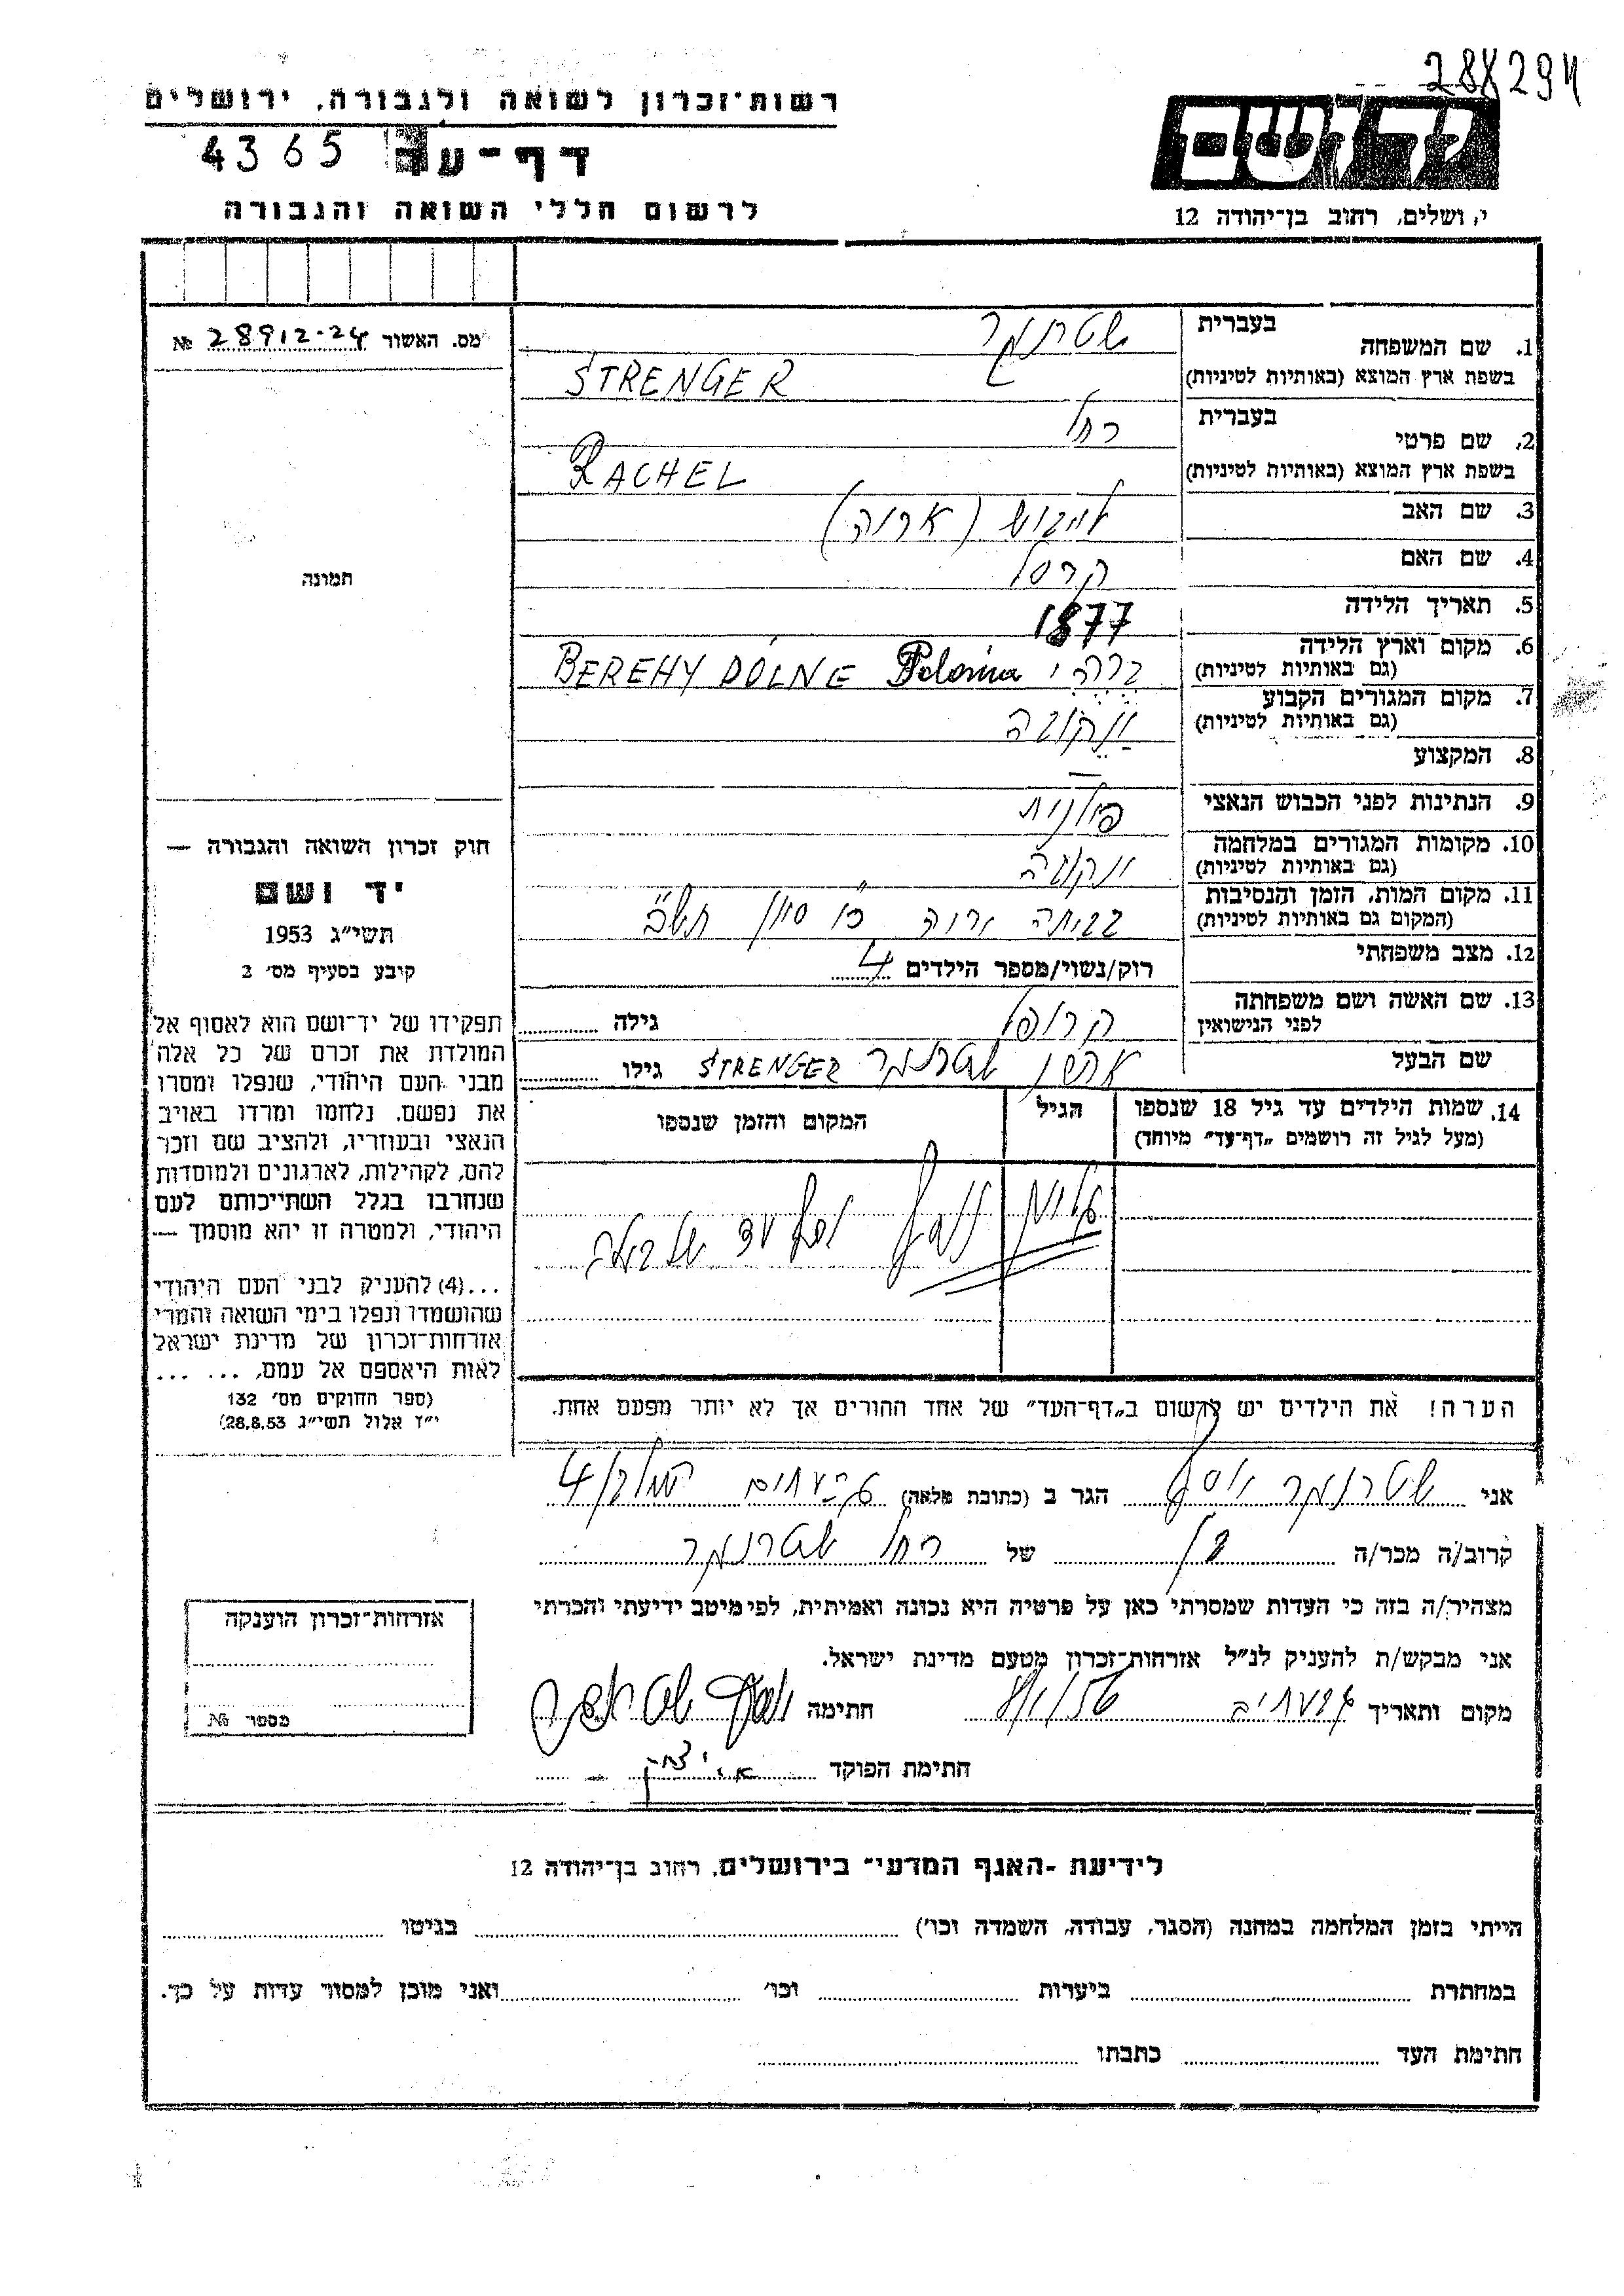 288294
רשות־זכרון לשואה ולגבורה, ירושלים
דף-עד 4365
לרשום חללי השואה והגבורה
יד ושם
ירושלים, רחוב בן־יהודה 12
מס. האשור 28912-24 №
תמונה
חוק זכרון השואה והגבורה —
יד ושם
תשי״ג 1953
קיבע בסעיף מס׳ 2
תפקידו של יד־ושם הוא לאסוף אל
המולדת את זכרם של כל אלה
מבני העם היהודי, שנפלו ומסרו
את נפשם, נלחמו ומרדו באויב
הנאצי ובעוזריו, ולהציב שם וזכר
להם, לקהילות, לארגונים ולמוסדות
שנחרבו בגלל השתייכותם לעם
היהודי, ולמטרה זו יהא מוסמך —
...(4) להעניק לבני העם היהודי
שהושמדו ונפלו בימי השואה והמרי
אזרחות־זכרון של מדינת ישראל
לאות היאספם אל עמם, ... ...
(ספר החוקים מס׳ 132
י״ז אלול תשי״ג 28.8.53)
בעברית שטרנגר
1. שם המשפחה
בשפת ארץ המוצא (באותיות לטיניות) STRENGER
בעברית רחל
2. שם פרטי
בשפת ארץ המוצא (באותיות לטיניות) RACHEL
3. שם האב לייבוש
4. שם האם
5. תאריך הלידה 1877
6. מקום וארץ הלידה
(גם באותיות לטיניות) BEREHY DOLNE Polonia
7. מקום המגורים הקבוע
(גם באותיות לטיניות)
8. המקצוע —
9. הנתינות לפני הכבוש הנאצי פולנית
10. מקומות המגורים במלחמה
(גם באותיות לטיניות)
11. מקום המות, הזמן והנסיבות
(המקום גם באותיות לטיניות) סיון תש״ב
12. מצב משפחתי רוק/נשוי/מספר הילדים 4
13. שם האשה ושם משפחתה
לפני הנישואין גילה
שם הבעל שטרנגר STRENGER גילו
14. שמות הילדים עד גיל 18 שנספו הגיל המקום והזמן שנספו
(מעל לגיל זה רושמים „דף־עד״ מיוחד)
הערה! את הילדים יש לרשום ב„דף־העד״ של אחד ההורים אך לא יותר מפעם אחת.
אני שטרנגר יוסף הגר ב (כתובת מלאה) גבעתיים 4
קרוב/ה מכר/ה בן של רחל שטרנגר
מצהיר/ה בזה כי העדות שמסרתי כאן על פרטיה היא נכונה ואמיתית, לפי מיטב ידיעתי והכרתי
אני מבקש/ת להעניק לנ״ל אזרחות־זכרון מטעם מדינת ישראל.
מקום ותאריך גבעתיים חתימה יוסף שטרנגר
חתימת הפוקד
אזרחות־זכרון הוענקה
מספר №
לידיעת -האגף המדעי״ בירושלים, רחוב בן־יהודה 12
הייתי בזמן המלחמה במחנה (הסגר, עבודה, השמדה וכו׳) בגיטו
במחתרת ביערות וכו׳ ואני מוכן למסור עדות על כך.
חתימת העד כתבתו